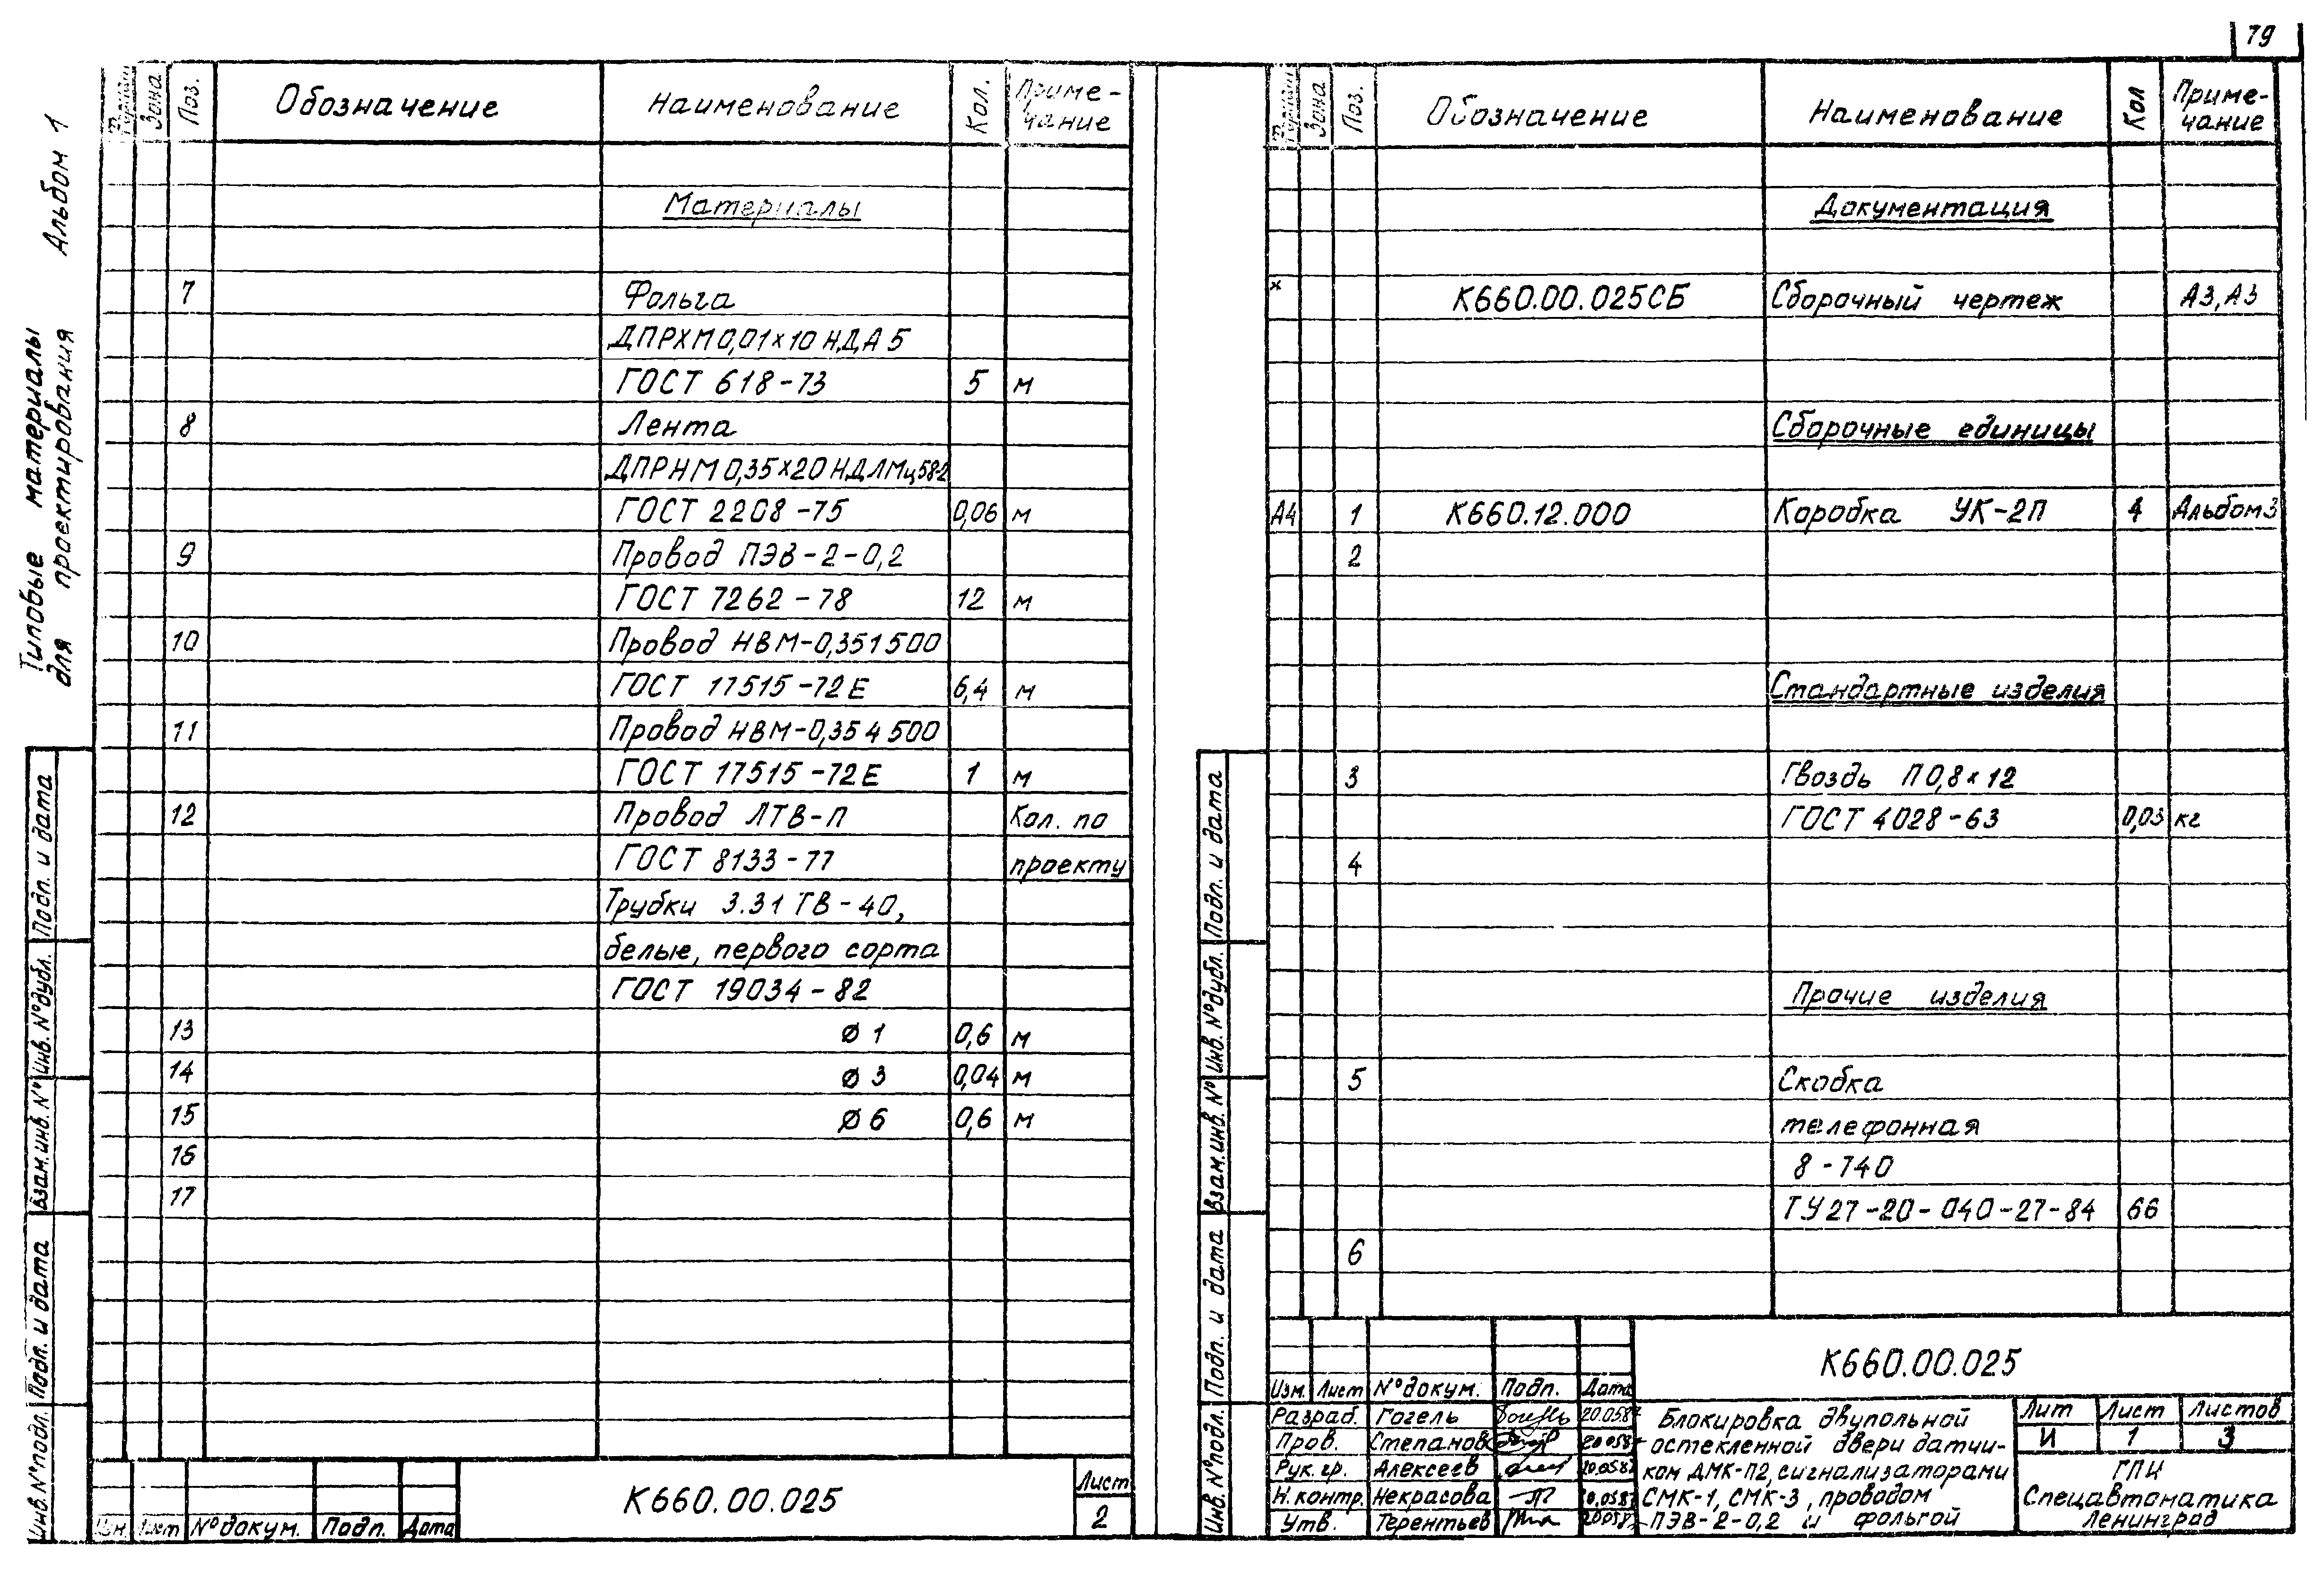 79
Типовые материалы
для проектирования Альбом 1
Формат Зона Поз. Обозначение Наименование Кол. Приме-
чание
Материалы
7 Фольга
ДПРХМ 0,01×10 НДА5
ГОСТ 618-73 5 м
8 Лента
ДПРНМ 0,35×20 НДЛМц58-2
ГОСТ 2208-75 0,06 м
9 Провод ПЭВ-2-0,2
ГОСТ 7262-78 12 м
10 Провод НВМ-0,351500
ГОСТ 17515-72Е 6,4 м
11 Провод НВМ-0,354500
ГОСТ 17515-72Е 1 м
12 Провод ЛТВ-П Кол. по
ГОСТ 8133-77 проекту
Трубки 3.31 ТВ-40,
белые, первого сорта
ГОСТ 19034-82
13 ∅1 0,6 м
14 ∅3 0,04 м
15 ∅6 0,6 м
16
17
Инв.№подл. Подп. и дата Взам.инв.№ Инв.№дубл. Подп. и дата
Изм Лист №докум. Подп. Дата
К660.00.025
Лист
2
Формат Зона Поз. Обозначение Наименование Кол Приме-
чание
Документация
× К660.00.025СБ Сборочный чертеж А3,А3
Сборочные единицы
А4 1 К660.12.000 Коробка УК-2П 4 Альбом3
2
Стандартные изделия
3 Гвоздь П0,8×12
ГОСТ 4028-63 0,03 кг
4
Прочие изделия
5 Скобка
телефонная
8-740
ТУ27-20-040-27-84 66
6
Инв.№подл. Подп. и дата Взам.инв.№ Инв.№дубл. Подп. и дата
К660.00.025
Изм. Лист №докум. Подп. Дата
Разраб. Гогель 20.0587
Пров. Степанов 20.0587
Рук.гр. Алексеев 20.0587
Н.контр. Некрасова 20.0587
Утв. Терентьев 20.0587
Блокировка двупольной
остекленной двери датчи-
ком ДМК-П2, сигнализаторами
СМК-1, СМК-3, проводом
ПЭВ-2-0,2 и фольгой
Лит Лист Листов
И 1 3
ГПИ
Спецавтоматика
Ленинград